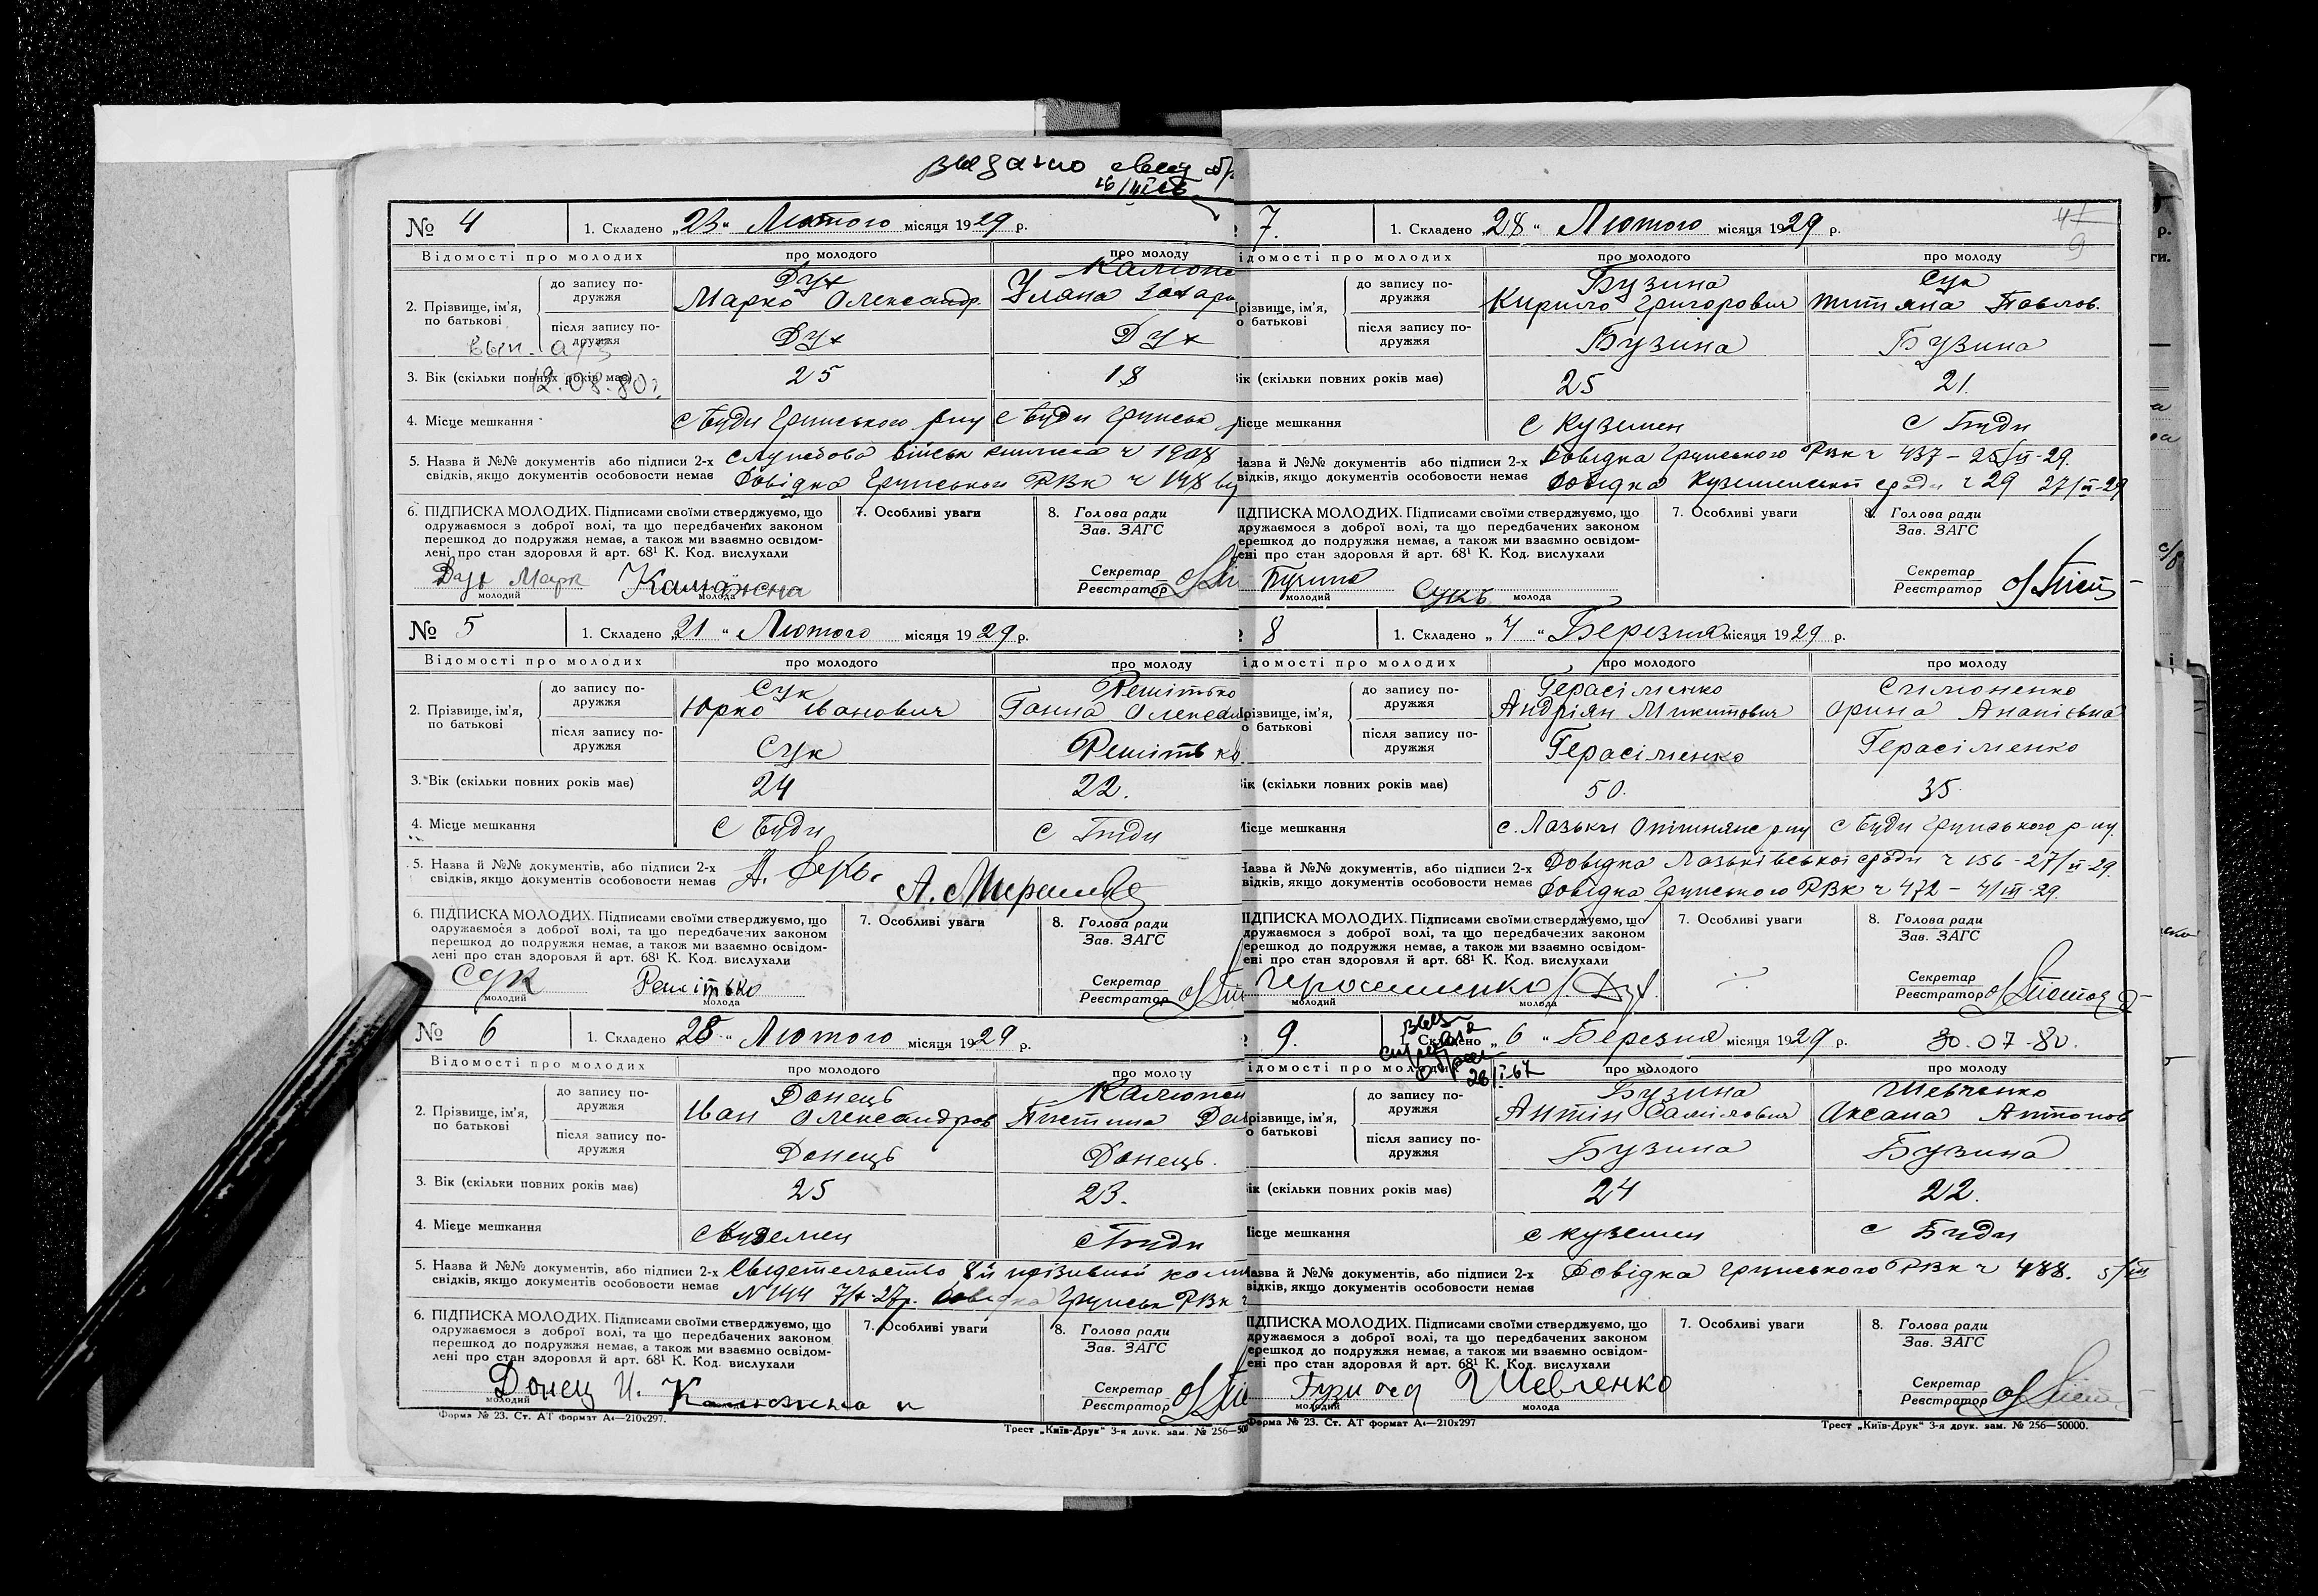 видано
№ 4 1. Складено „23“ Лютого місяця 1929 р.
Відомості про молодих про молодого про молоду
2. Прізвище, ім’я, по батькові
до запису подружжя
Дух
Марко Олександр. Уляна Захар
після запису подружжя
Дух Дух
вып. а/з
3. Вік (скільки повних років має) 25 18
12.08.80г.
4. Місце мешкання с Буди Грунського р-ну с Буди Грунськ
5. Назва й №№ документів або підписи 2-х
свідків, якщо документів особовости немає
військ ч 1908
Довідка Грунського РВК ч 148
6. ПІДПИСКА МОЛОДИХ. Підписами своїми стверджуємо, що
одружаємося з доброї волі, та що передбачених законом
перешкод до подружжя немає, а також ми взаємно освідом-
лені про стан здоровля й арт. 68¹ К. Код. вислухали
Дух Марк
молодий молода
7. Особливі уваги
8. Голова ради
Зав. ЗАГС
Секретар
Реєстратор
№ 5 1. Складено „21“ Лютого місяця 1929 р.
Відомості про молодих про молодого про молоду
2. Прізвище, ім’я, по батькові
до запису подружжя
Сук Решітько
Юрко Іванович Ганна Олексан
після запису подружжя
Сук Решітько
3. Вік (скільки повних років має) 24 22.
4. Місце мешкання с Буди с Буди
5. Назва й №№ документів, або підписи 2-х
свідків, якщо документів особовости немає
6. ПІДПИСКА МОЛОДИХ. Підписами своїми стверджуємо, що
одружаємося з доброї волі, та що передбачених законом
перешкод до подружжя немає, а також ми взаємно освідом-
лені про стан здоровля й арт. 68¹ К. Код. вислухали
Сук Решітько
молодий молода
7. Особливі уваги
8. Голова ради
Зав. ЗАГС
Секретар
Реєстратор
№ 6 1. Складено 28 “ Лютого місяця 1929 р.
Відомості про молодих про молодого про молоду
2. Прізвище, ім’я, по батькові
до запису подружжя
Донець
Іван Олександров
після запису подружжя
Донець Донець.
3. Вік (скільки повних років має) 25 23.
4. Місце мешкання с Куземен с Буди
5. Назва й №№ документів, або підписи 2-х
свідків, якщо документів особовости немає
Свідетельство
Довідка Грунськ РВК ч
6. ПІДПИСКА МОЛОДИХ. Підписами своїми стверджуємо, що
одружаємося з доброї волі, та що передбачених законом
перешкод до подружжя немає, а також ми взаємно освідом-
лені про стан здоровля й арт. 68¹ К. Код. вислухали
Донец И.
молодий
7. Особливі уваги
8. Голова ради
Зав. ЗАГС
Секретар
Реєстратор
Форма № 23. Ст. АТ формат А₄—210х297.
Трест „Київ-Друк“ 3-я друк. зам. № 256—500
7. 1. Складено „28“ Лютого місяця 1929 р.
9
ідомості про молодих про молодого про молоду
різвище, ім’я,
о батькові
до запису подружжя
Бузина Сук
Кирило Григорович Титяна Павлов.
після запису подружжя
Бузина Бузина
ік (скільки повних років має) 25 21.
Місце мешкання с Куземен с Буди
Назва й №№ документів або підписи 2-х
відків, якщо документів особовости немає
Довідка Грунського РВК ч 437 – 25/II-29.
Довідка Куземенської с/ради ч 29 27/II-29
ПІДПИСКА МОЛОДИХ. Підписами своїми стверджуємо, що
дружаємося з доброї волі, та що передбачених законом
ерешкод до подружжя немає, а також ми взаємно освідом-
ені про стан здоровля й арт. 68¹ К. Код. вислухали
Бузина Сукъ
молодий молода
7. Особливі уваги
8. Голова ради
Зав. ЗАГС
Секретар
Реєстратор
8 1. Складено „4“ Березня місяця 1929 р.
ідомості про молодих про молодого про молоду
різвище, ім’я,
о батькові
до запису подружжя
Герасіменко Симоненко
Андріян Микитович Орина Ананіївна
після запису подружжя
Герасіменко Герасіменко
ік (скільки повних років має) 50. 35.
Місце мешкання с. Лазьки Опішнянс р-ну с Буди Грунського р-ну.
Назва й №№ документів, або підписи 2-х
відків, якщо документів особовости немає
Довідка Лазьківської с/ради ч 156 – 27/II-29.
Довідка Грунського РВК ч 472 – 4/III-29.
ПІДПИСКА МОЛОДИХ. Підписами своїми стверджуємо, що
дружаємося з доброї волі, та що передбачених законом
ерешкод до подружжя немає, а також ми взаємно освідом-
ені про стан здоровля й арт. 68¹ К. Код. вислухали
молодий молода
7. Особливі уваги
8. Голова ради
Зав. ЗАГС
Секретар
Реєстратор
9. 1. Складено „6“ Березня місяця 1929 р. 30.07.80.
28/I-67
ідомості про молодих про молодого про молоду
різвище, ім’я,
о батькові
до запису подружжя
Бузина Шевченко
Антін Самілович Аксана Антонов
після запису подружжя
Бузина Бузина
ік (скільки повних років має) 24 22.
Місце мешкання с Куземен с Буди
Назва й №№ документів, або підписи 2-х
відків, якщо документів особовости немає
Довідка Грунського РВК ч 488. 5/III
ПІДПИСКА МОЛОДИХ. Підписами своїми стверджуємо, що
дружаємося з доброї волі, та що передбачених законом
ерешкод до подружжя немає, а також ми взаємно освідом-
ені про стан здоровля й арт. 68¹ К. Код. вислухали
Шевченко
молодий молода
7. Особливі уваги
8. Голова ради
Зав. ЗАГС
Секретар
Реєстратор
Форма № 23. Ст. АТ формат А₄—210х297
Трест „Київ-Друк“ 3-я друк. зам. № 256—50000.